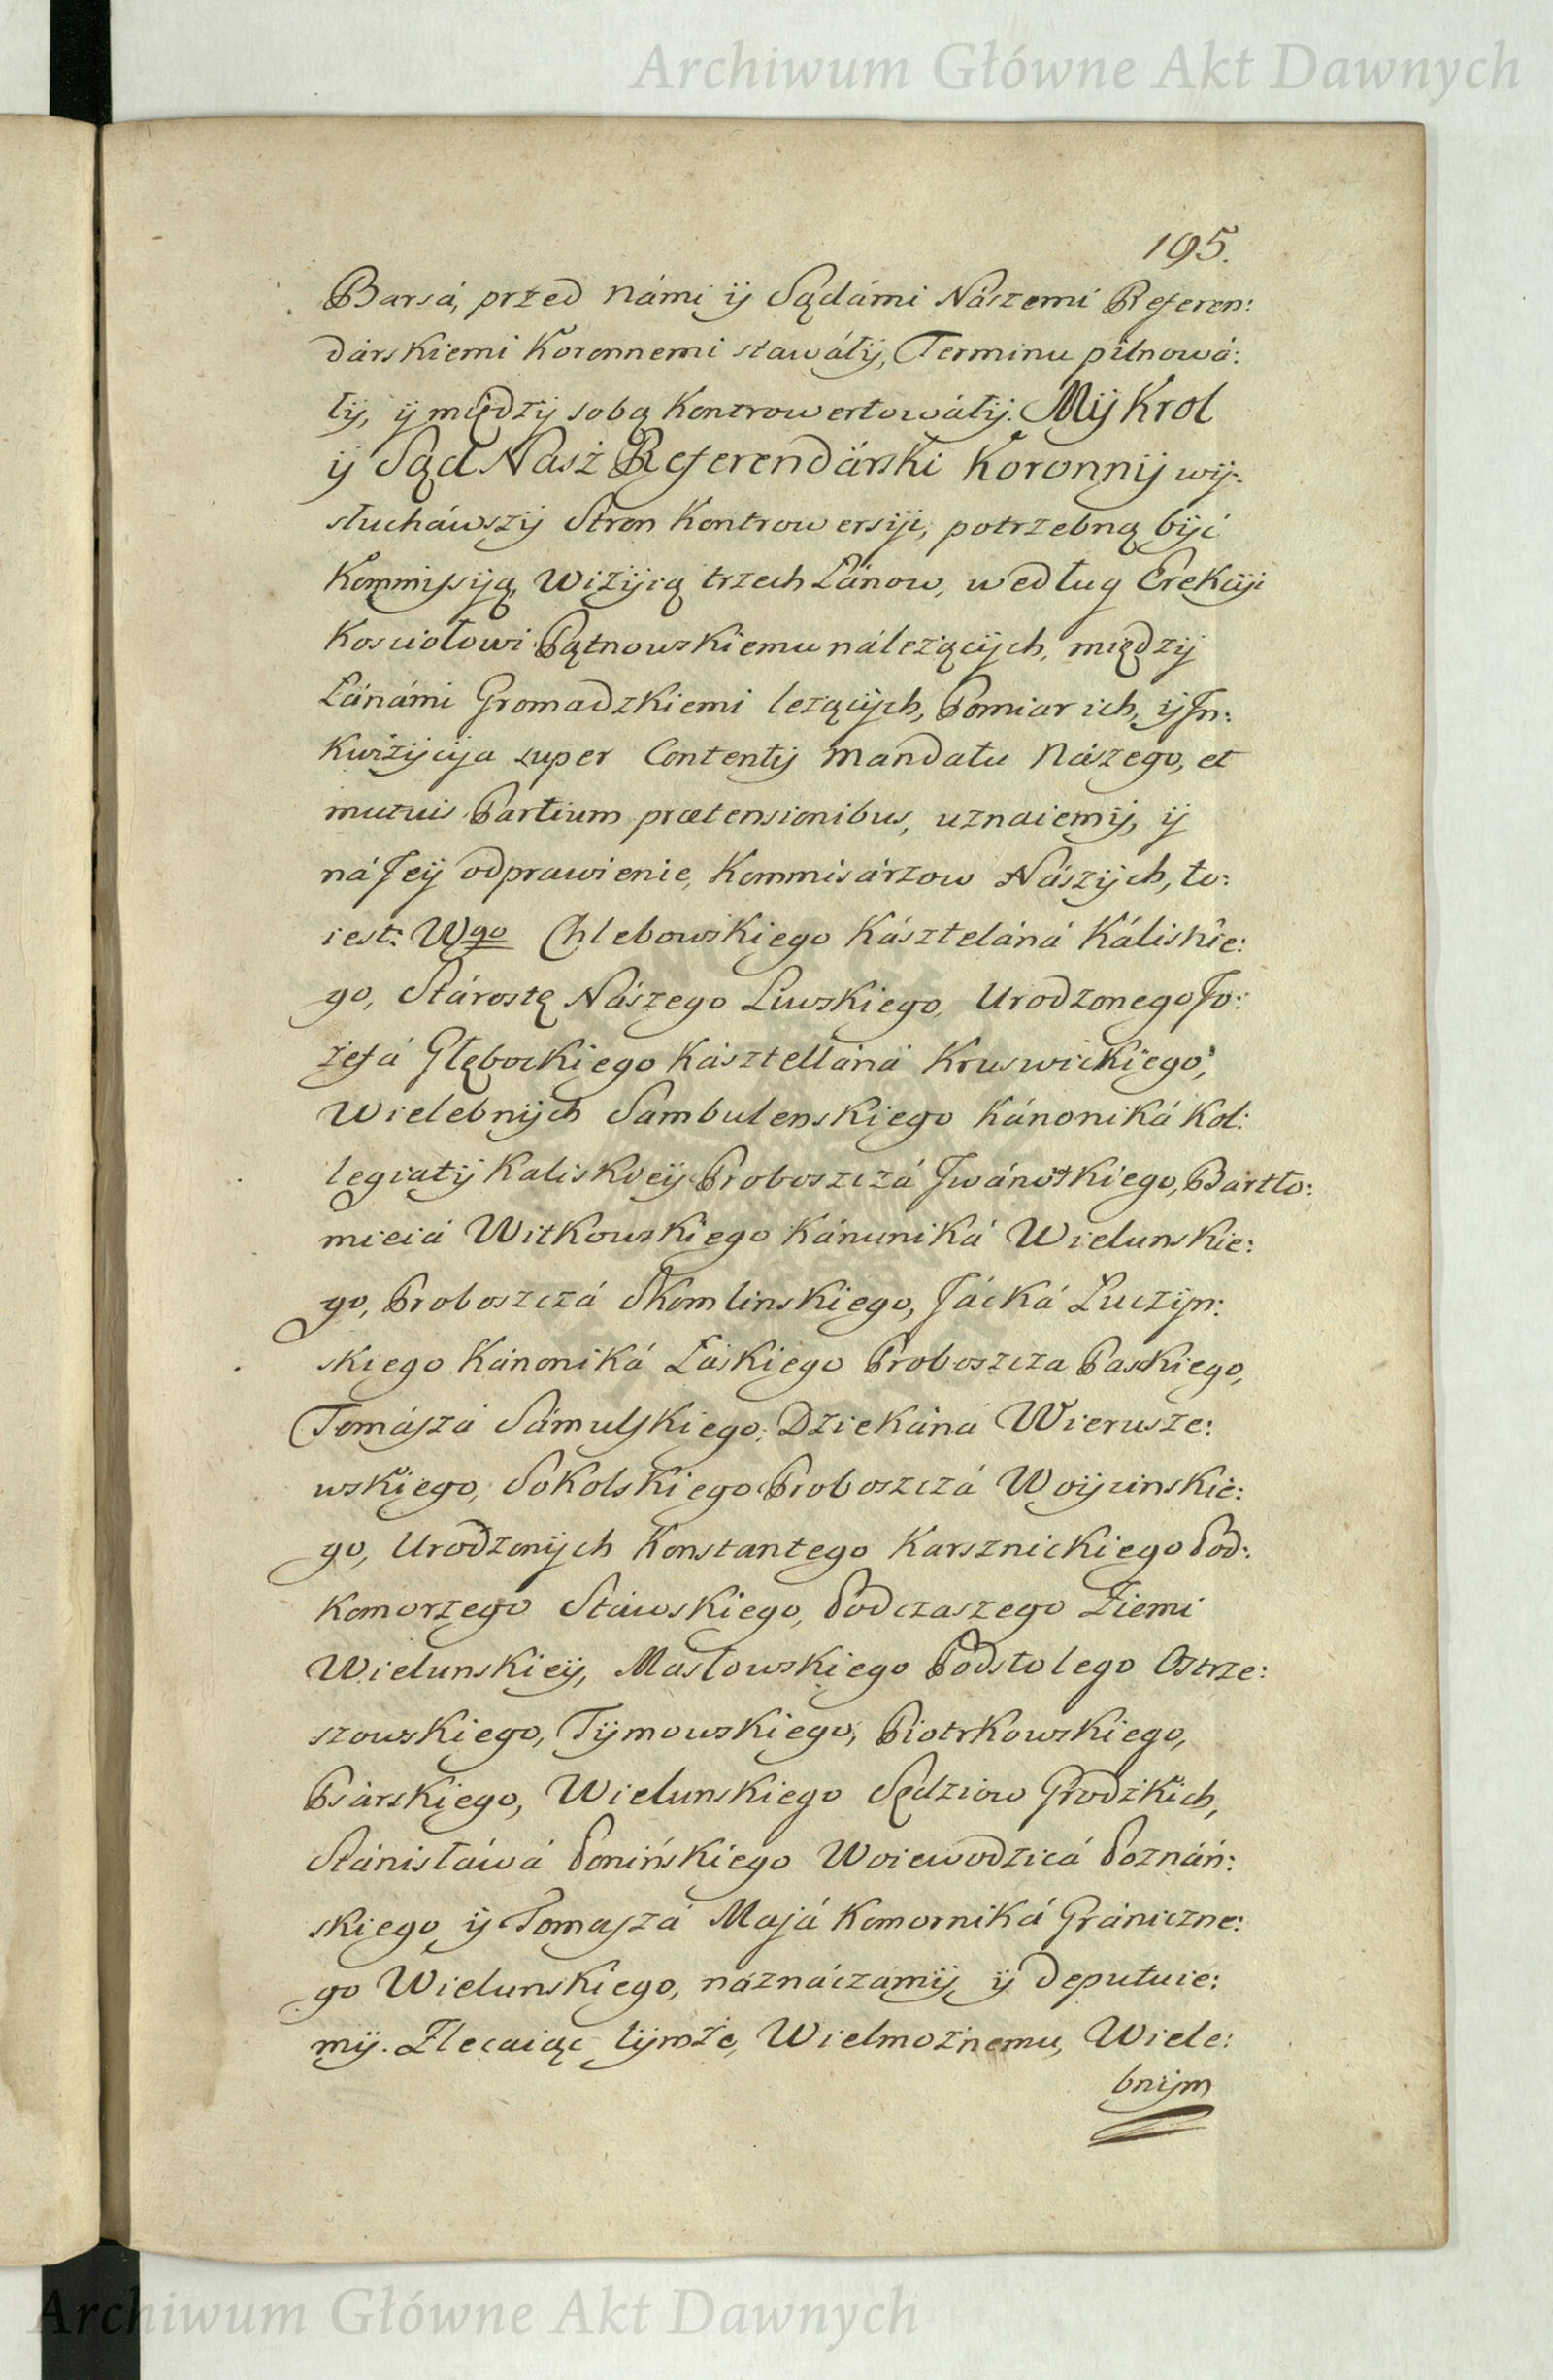 Archiwum Główne Akt Dawnych
195.
Barsá, przed námi ÿ Sądámi Nászemi Referen:
dárskiemi Koronnemi stawáłÿ, Terminu pilnowá:
łÿ, ÿ międzÿ sobą Kontrowertowáłÿ. Mÿ Krol
ÿ Sąd Nasz Referendárski Koronnÿ wÿ:
słucháwszÿ Stron Kontrowersÿi, potrzebną bÿć
Kommissÿą, Wizÿią trzech Łánow, według Erekcÿi
Kosciołowi Pątnowskiemu nálezącÿch, międzÿ
Łánámi Gromadzkiemi lezącÿch, Pomiar ich, ÿ In:
kwizÿcÿa super Contentÿ Mandatu Nászego, et
mutuis Partium prætensionibus, uznaiemÿ, ÿ
ná Jeÿ odprawienie, Kommisárzow Nászÿch, to:
iest: Wgo Chlebowskiego Kászteláná Káliskie:
go, Stárostę Nászego Liwskiego, Urodzonego Jo:
zefá Głębockiego Kásztelláná Kruswickiego,
Wielebnÿch Sambulenskiego Kánoniká Kol:
legiatÿ Kaliskieÿ Proboszczá Iwánoskiego, Bártło:
mieiá Witkowskiego Kánuniká Wielunskie:
go, Proboszczá Skomlinskiego, Jácká Łuczÿn:
skiego Kánoniká Łáskiego Proboszcza Paskiego,
Tomászá Sámulskiego, Dziekáná Wierusze:
wskiego, Sokolskiego Proboszczá Woÿcinskie:
go, Urodzonÿch Konstantego Karsznickiego Pod:
komorzego Stawskiego, Podczaszego Ziemi
Wielunskieÿ, Masłowskiego Podstolego Ostrze:
szowskiego, Tÿmowskiego, Piotrkowskiego,
Psárskiego, Wielunskiego Sędziow Grodzkich,
Stánisłáwá Ponińskiego Woiewodzicá Poznáń:
skiego, ÿ Tomaszá Majá Komorniká Grániczne:
go Wielunskiego, náznáczamÿ, ÿ deputuie:
mÿ. Zlecaiąc tÿmże, Wielmożnemu, Wiele:
bnÿm
Archiwum Główne Akt Dawnych